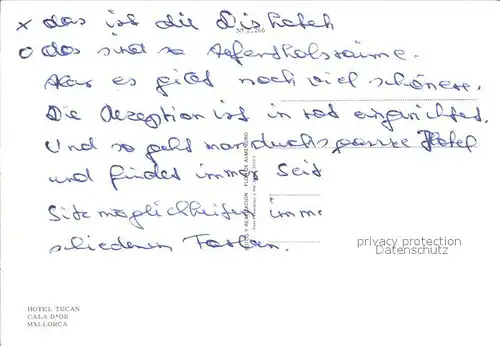 x das ist die Diskothek
o das sind so Aufenthaltsräume.
Aber es gibt noch viel schönere.
Die Rezeption ist in rot eingerichtet.
Und so geht man durchs ganze Hotel
und findet immer Seit
Sitzmöglichkeiten imme
schiedenen Farben.
privacy protection
Datenschutz
HOTEL TUCAN
CALA D'OR
MALLORCA